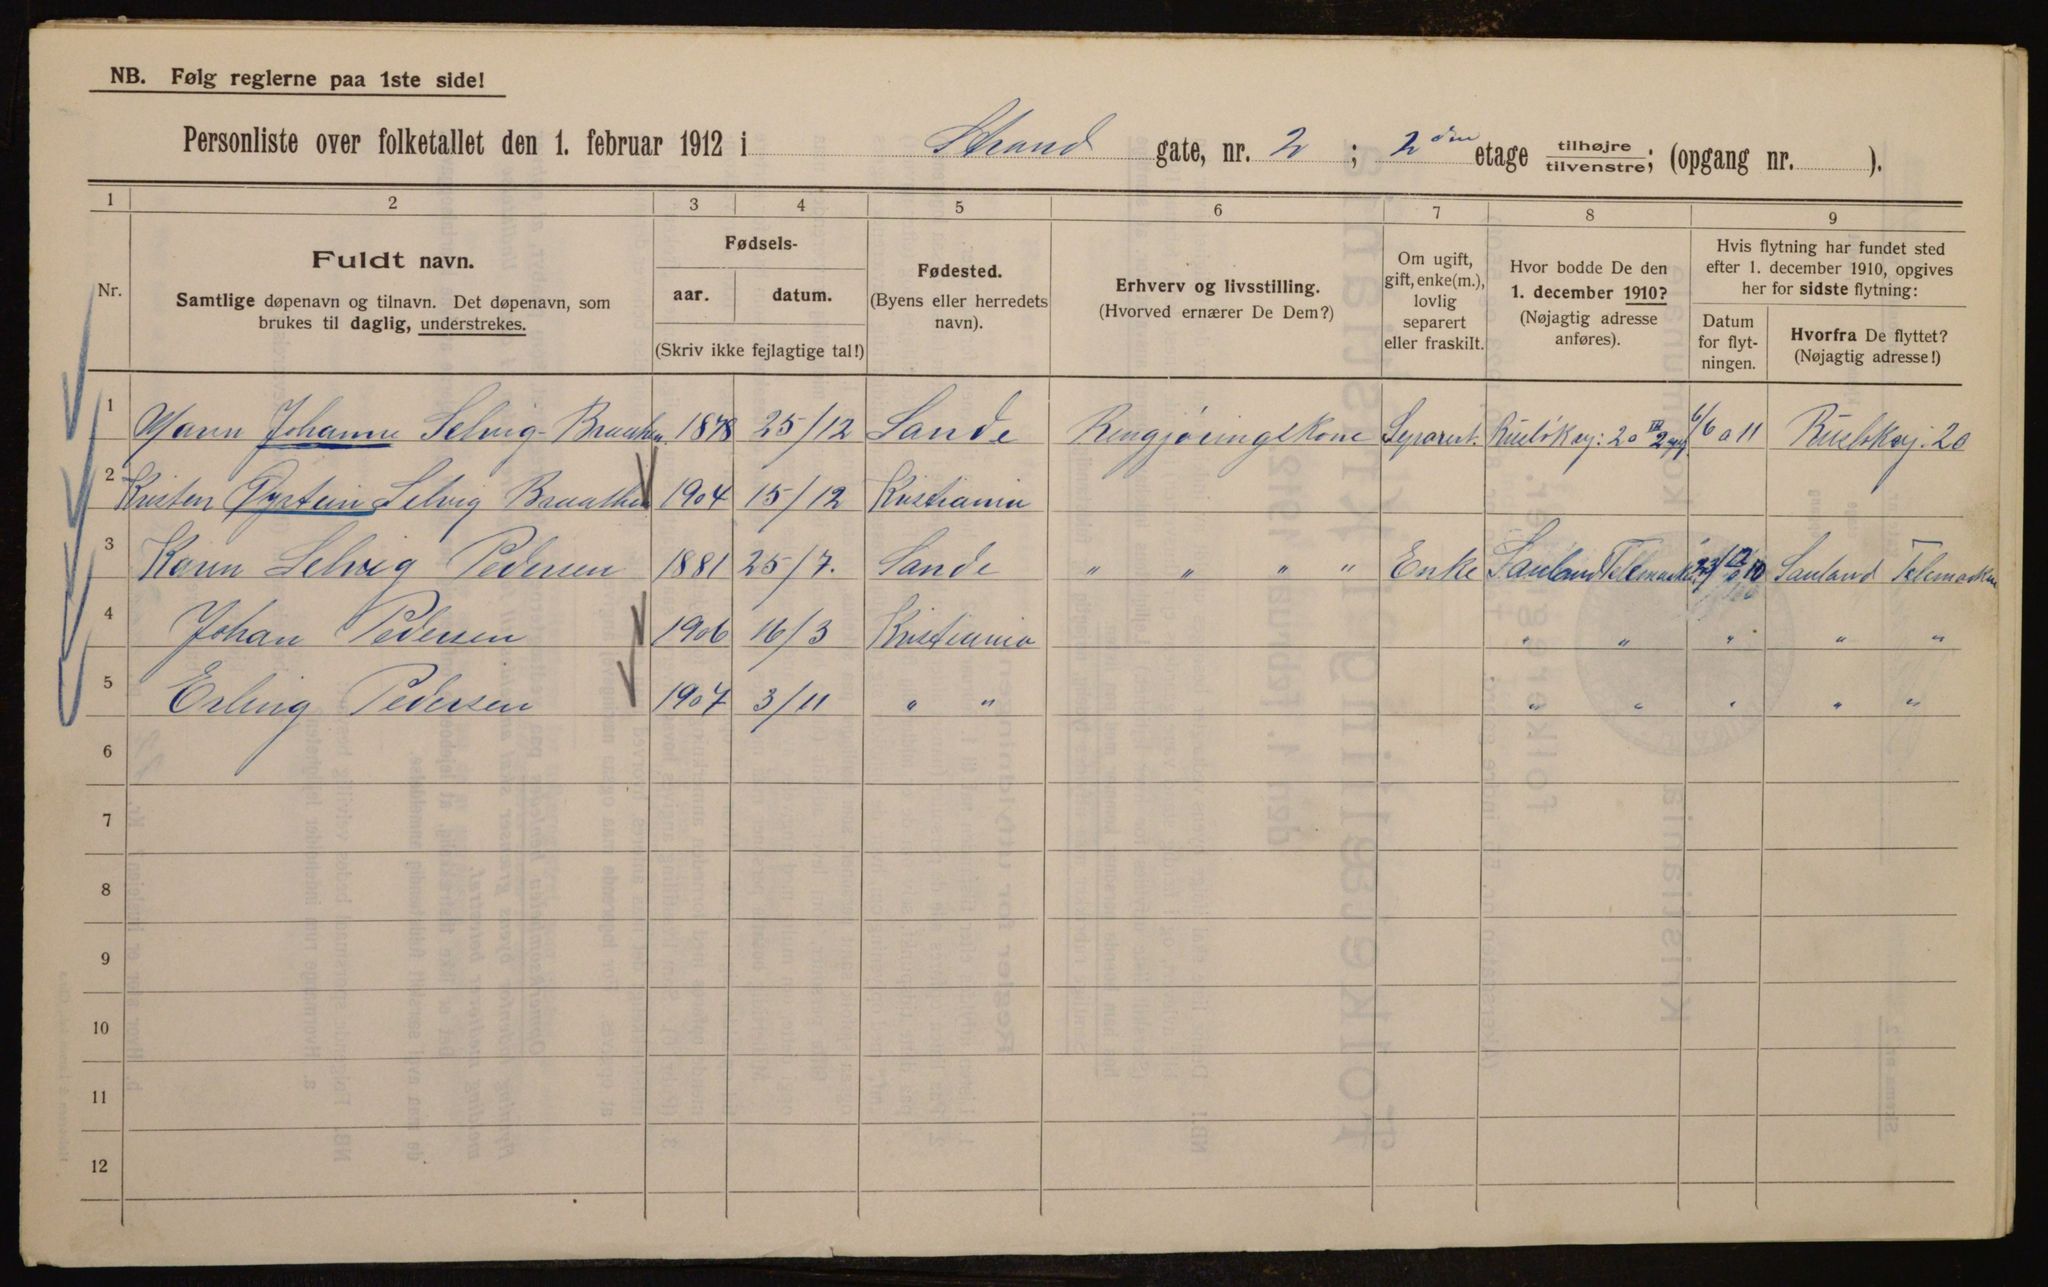 NB. Følg reglerne paa 1ste side!
Personliste over folketallet den 1. februar 1912 i Strand gate, nr. 2 ; 2den etage tilhøjre/tilvenstre; (opgang nr. ).
1 2 3 4 5 6 7 8 9
Nr.
Fuldt navn.
Samtlige døpenavn og tilnavn. Det døpenavn, som
brukes til daglig, understrekes.
Fødsels-
aar. datum.
(Skriv ikke fejlagtige tal!)
Fødested.
(Byens eller herredets
navn).
Erhverv og livsstilling.
(Hvorved ernærer De Dem?)
Om ugift,
gift, enke(m.),
lovlig
separert
eller fraskilt.
Hvor bodde De den
1. december 1910?
(Nøjagtig adresse
anføres).
Hvis flytning har fundet sted
efter 1. december 1910, opgives
her for sidste flytning:
Datum
for flyt-
ningen.
Hvorfra De flyttet?
(Nøjagtig adresse!)
1 Johanne Selvig-Braathen. 1878 25/12 Sande Rengjøringskone Separert. 20 6/6 11 20
2 Kristen Øystein Selvig Braathen 1904 15/12 Kristiania
3 Karen Selvig Pedersen 1881 25/7. Sande " " " " Enke Sauland Telemarken 12 10 Sauland Telemarken
4 Johan Pedersen 1906 16/3 Kristiania " " " " "
5 Erling Pedersen 1907 3/11 " " " " " " "
6
7
8
9
10
11
12